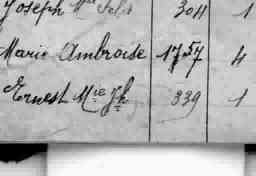 Joseph Mie Félix 3011 1
Marie Ambroise 1757 4
Ernest Mie Jh 339 1